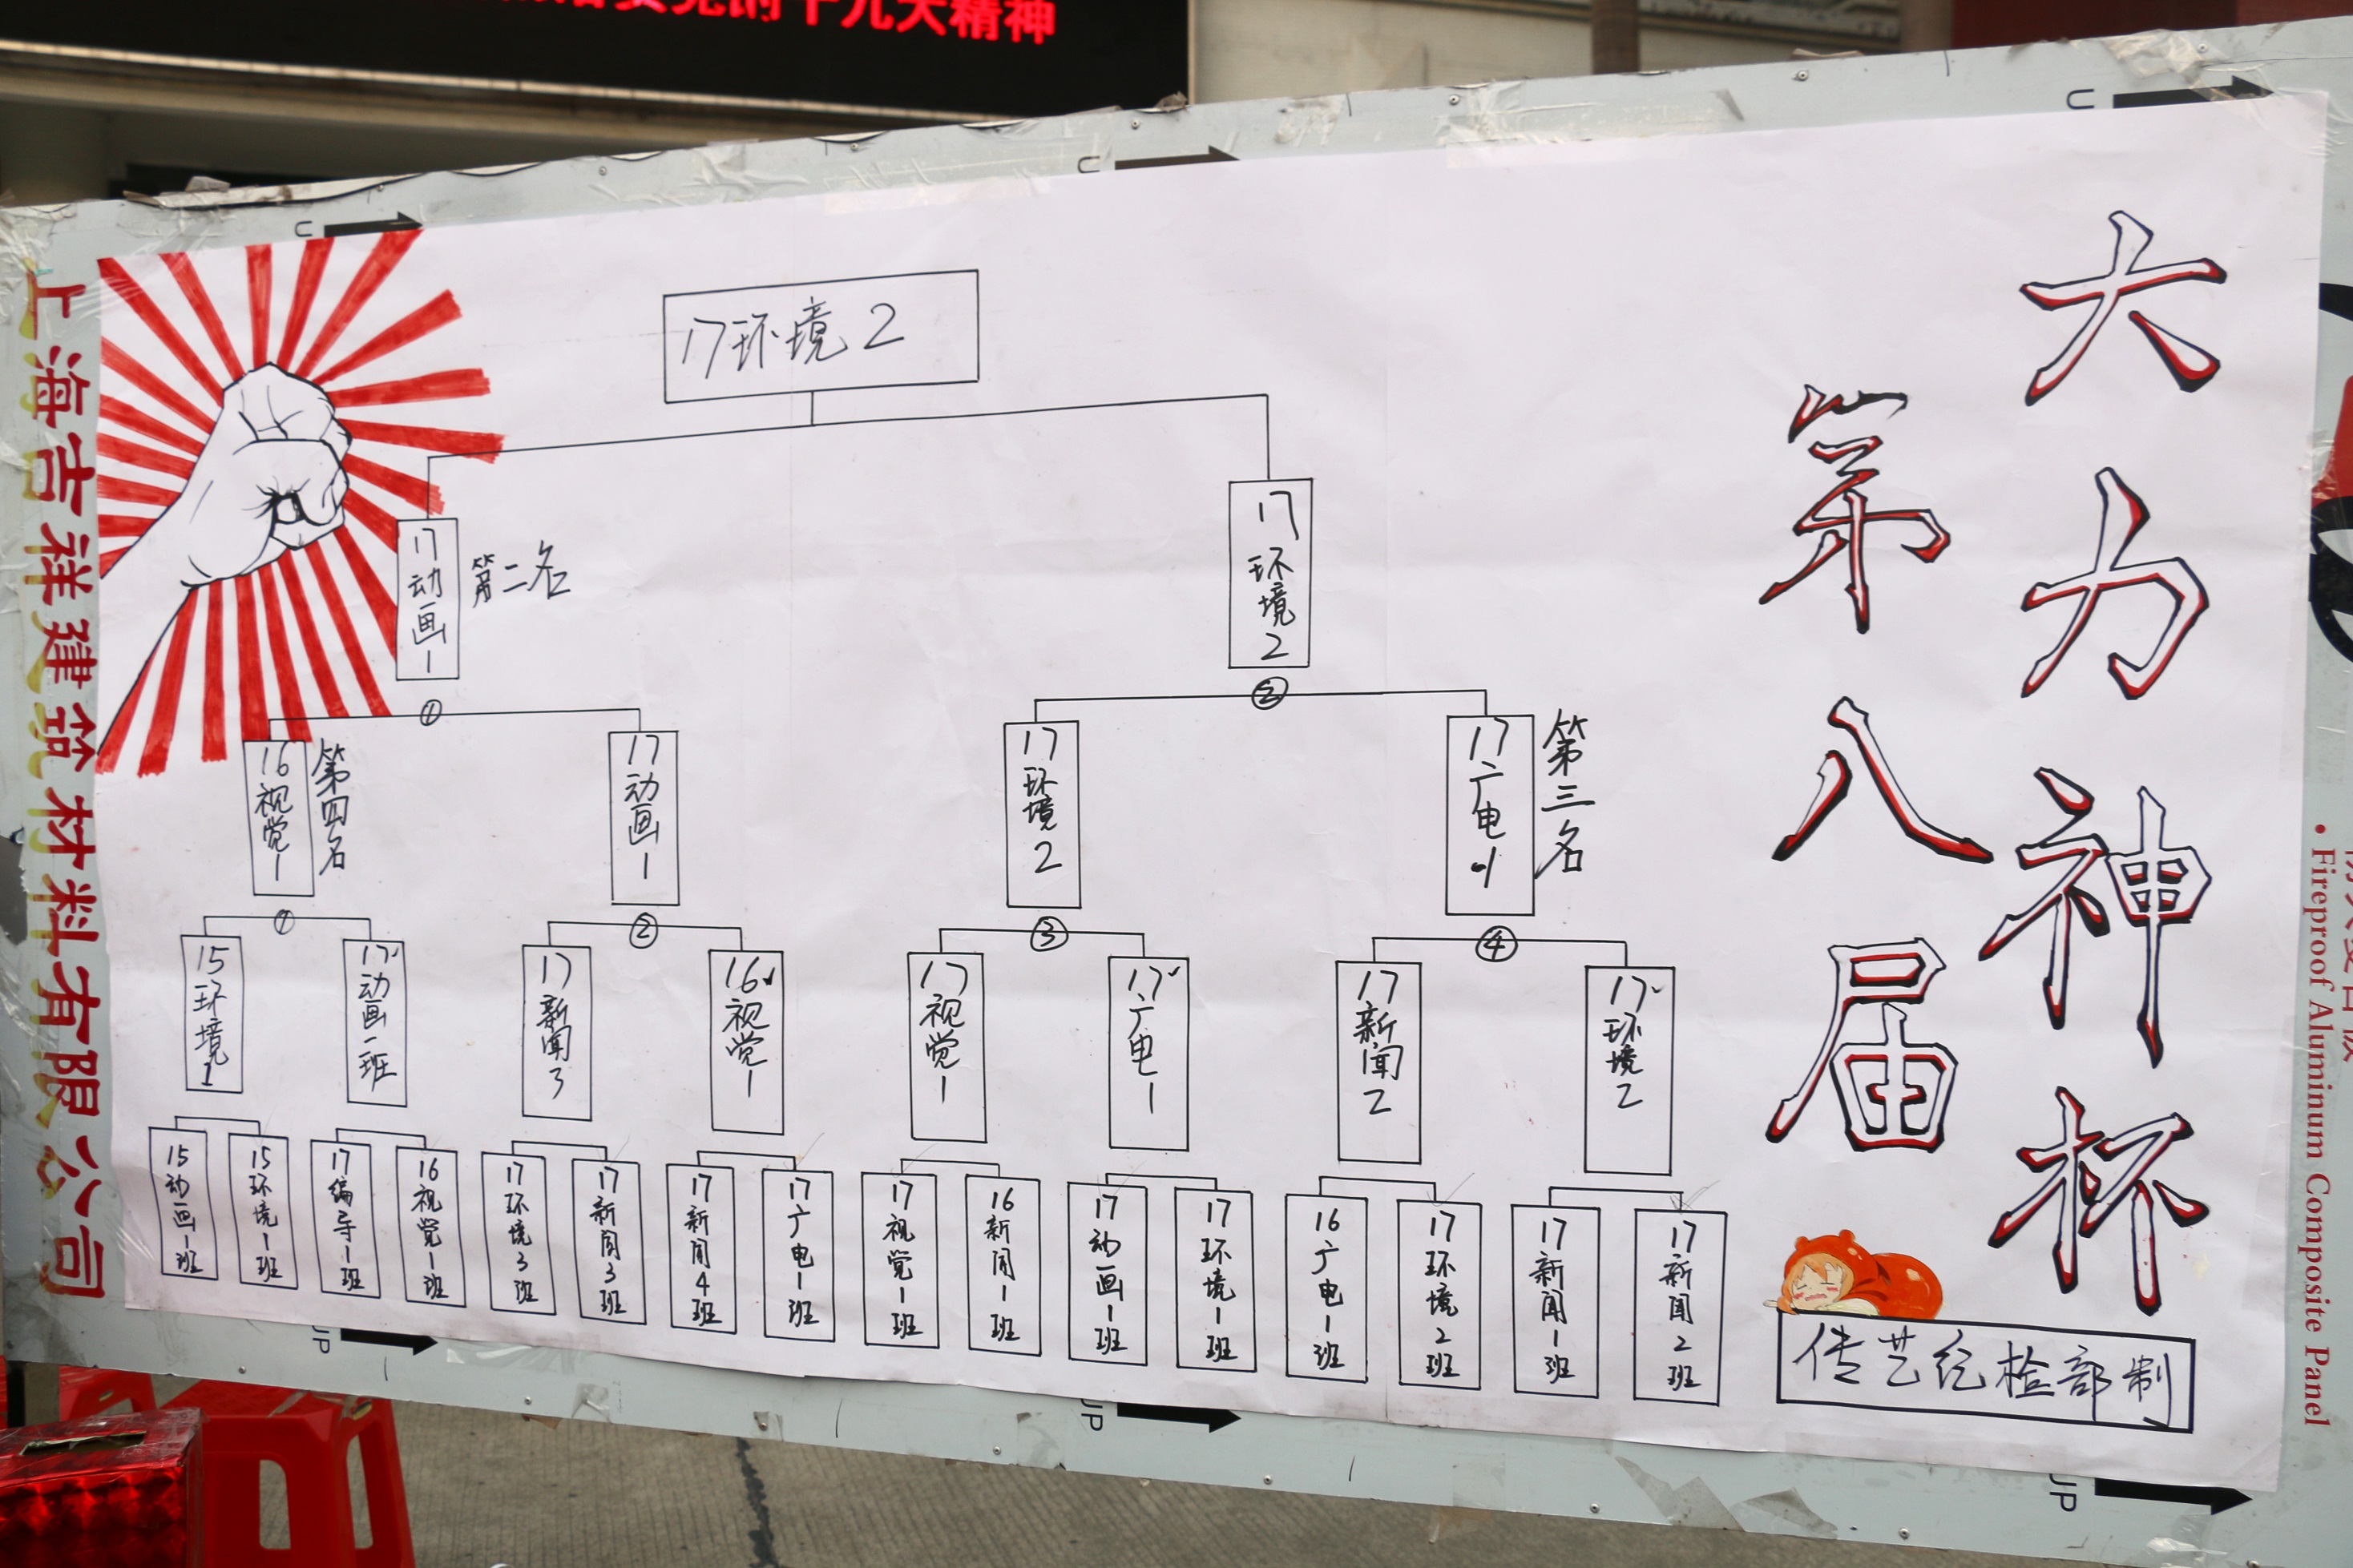 党的十九大精神
U
U
U
上海吉祥建筑材料有限公司
大力神杯
第八届
17环境2
17动画1
第二名
17环境2
①
②
16视觉1
第四名
17动画1
17环境2
17广电1
第三名
①
②
③
④
15环境1
17动画一班
17新闻3
16视觉1
17视觉1
17广电1
17新闻2
17环境2
15动画1班
15环境1班
17编导1班
16视觉1班
17环境3班
17新闻3班
17新闻4班
17广电1班
17视觉1班
16新闻1班
17动画1班
17环境1班
16广电1班
17环境2班
17新闻1班
17新闻2班
传艺纪检部制
• Fireproof Aluminum Composite Panel
UP
UP
UP